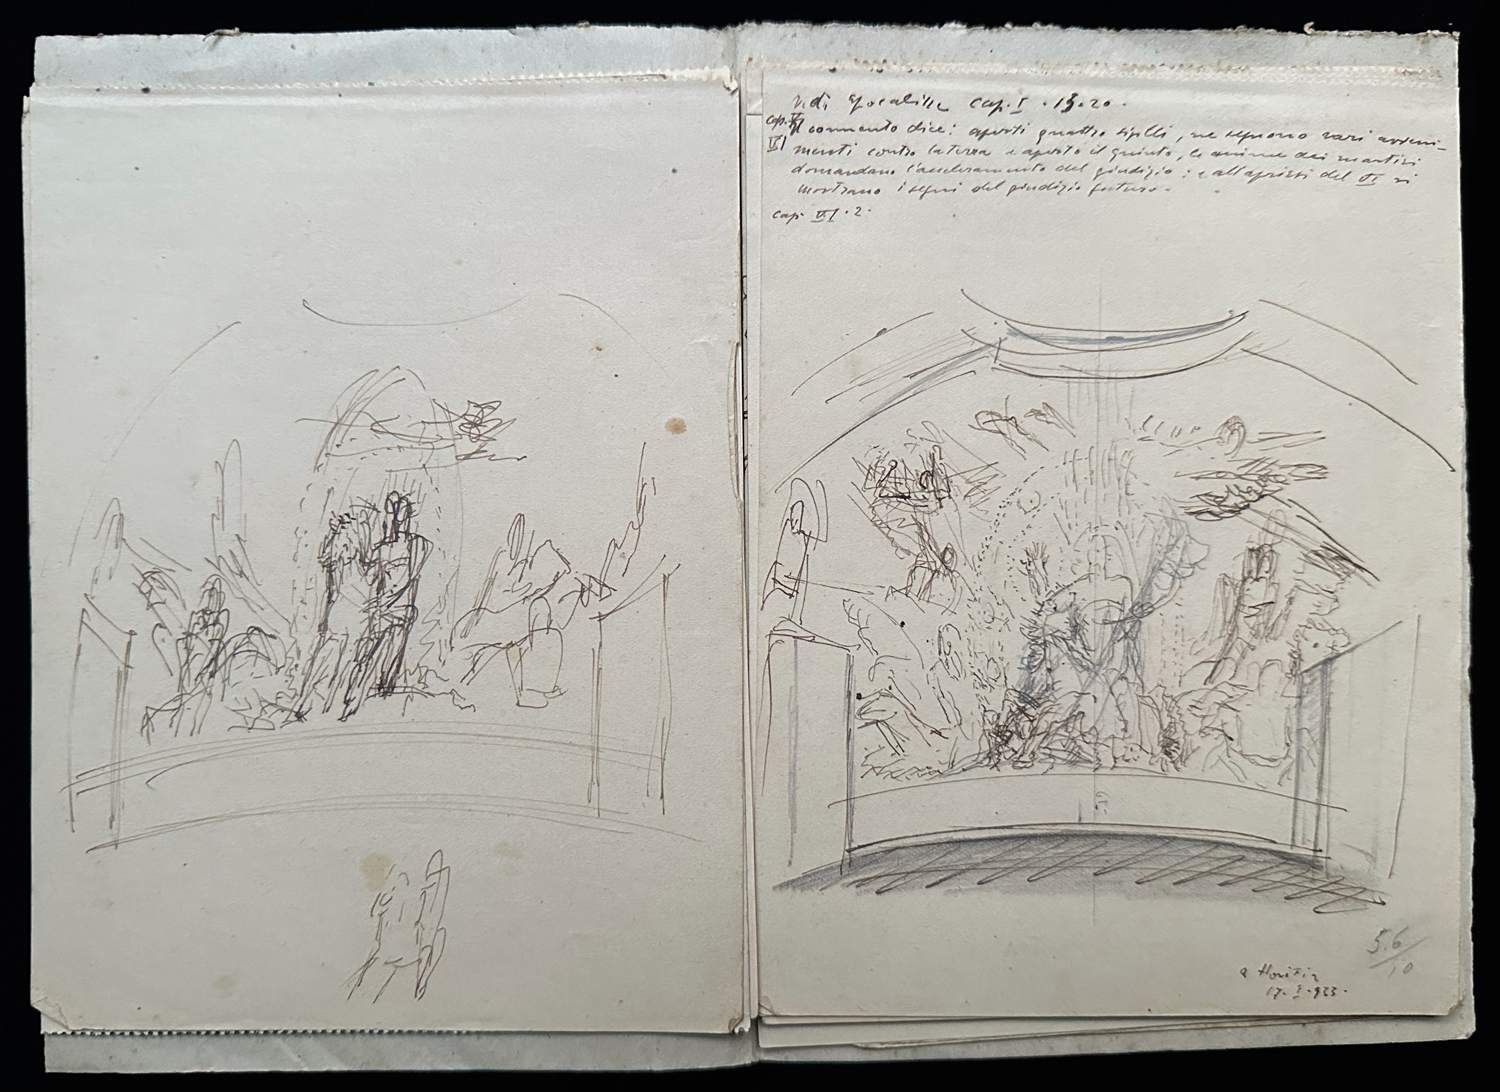 Vedi Apocalisse cap. I · 13 · 20 ·
cap. VI Il commento dice: aperti quattro sigilli, ne seguono vari avveni-
menti contro la terra e aperto il quinto, le anime dei martiri
domandano l'acceleramento del giudizio: e all'aprirsi del VI si
mostrano i segni del giudizio futuro.
cap. VI · 2 ·
5.6
10
17 · I · 933 ·